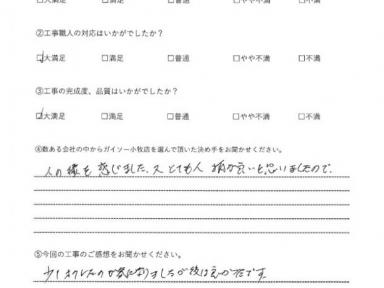 □大満足 □満足 □普通 □やや不満 □不満
②工事職人の対応はいかがでしたか?
□大満足 □満足 □普通 □やや不満 □不満
③工事の完成度、品質はいかがでしたか?
□大満足 □満足 □普通 □やや不満 □不満
④数ある会社の中からガイソー小牧店を選んで頂いた決め手をお聞かせください。
人の縁を感じました、又とても人柄が良いと思いましたので、
⑤今回の工事のご感想をお聞かせください。
少し
のが気になりましたが後は
です。